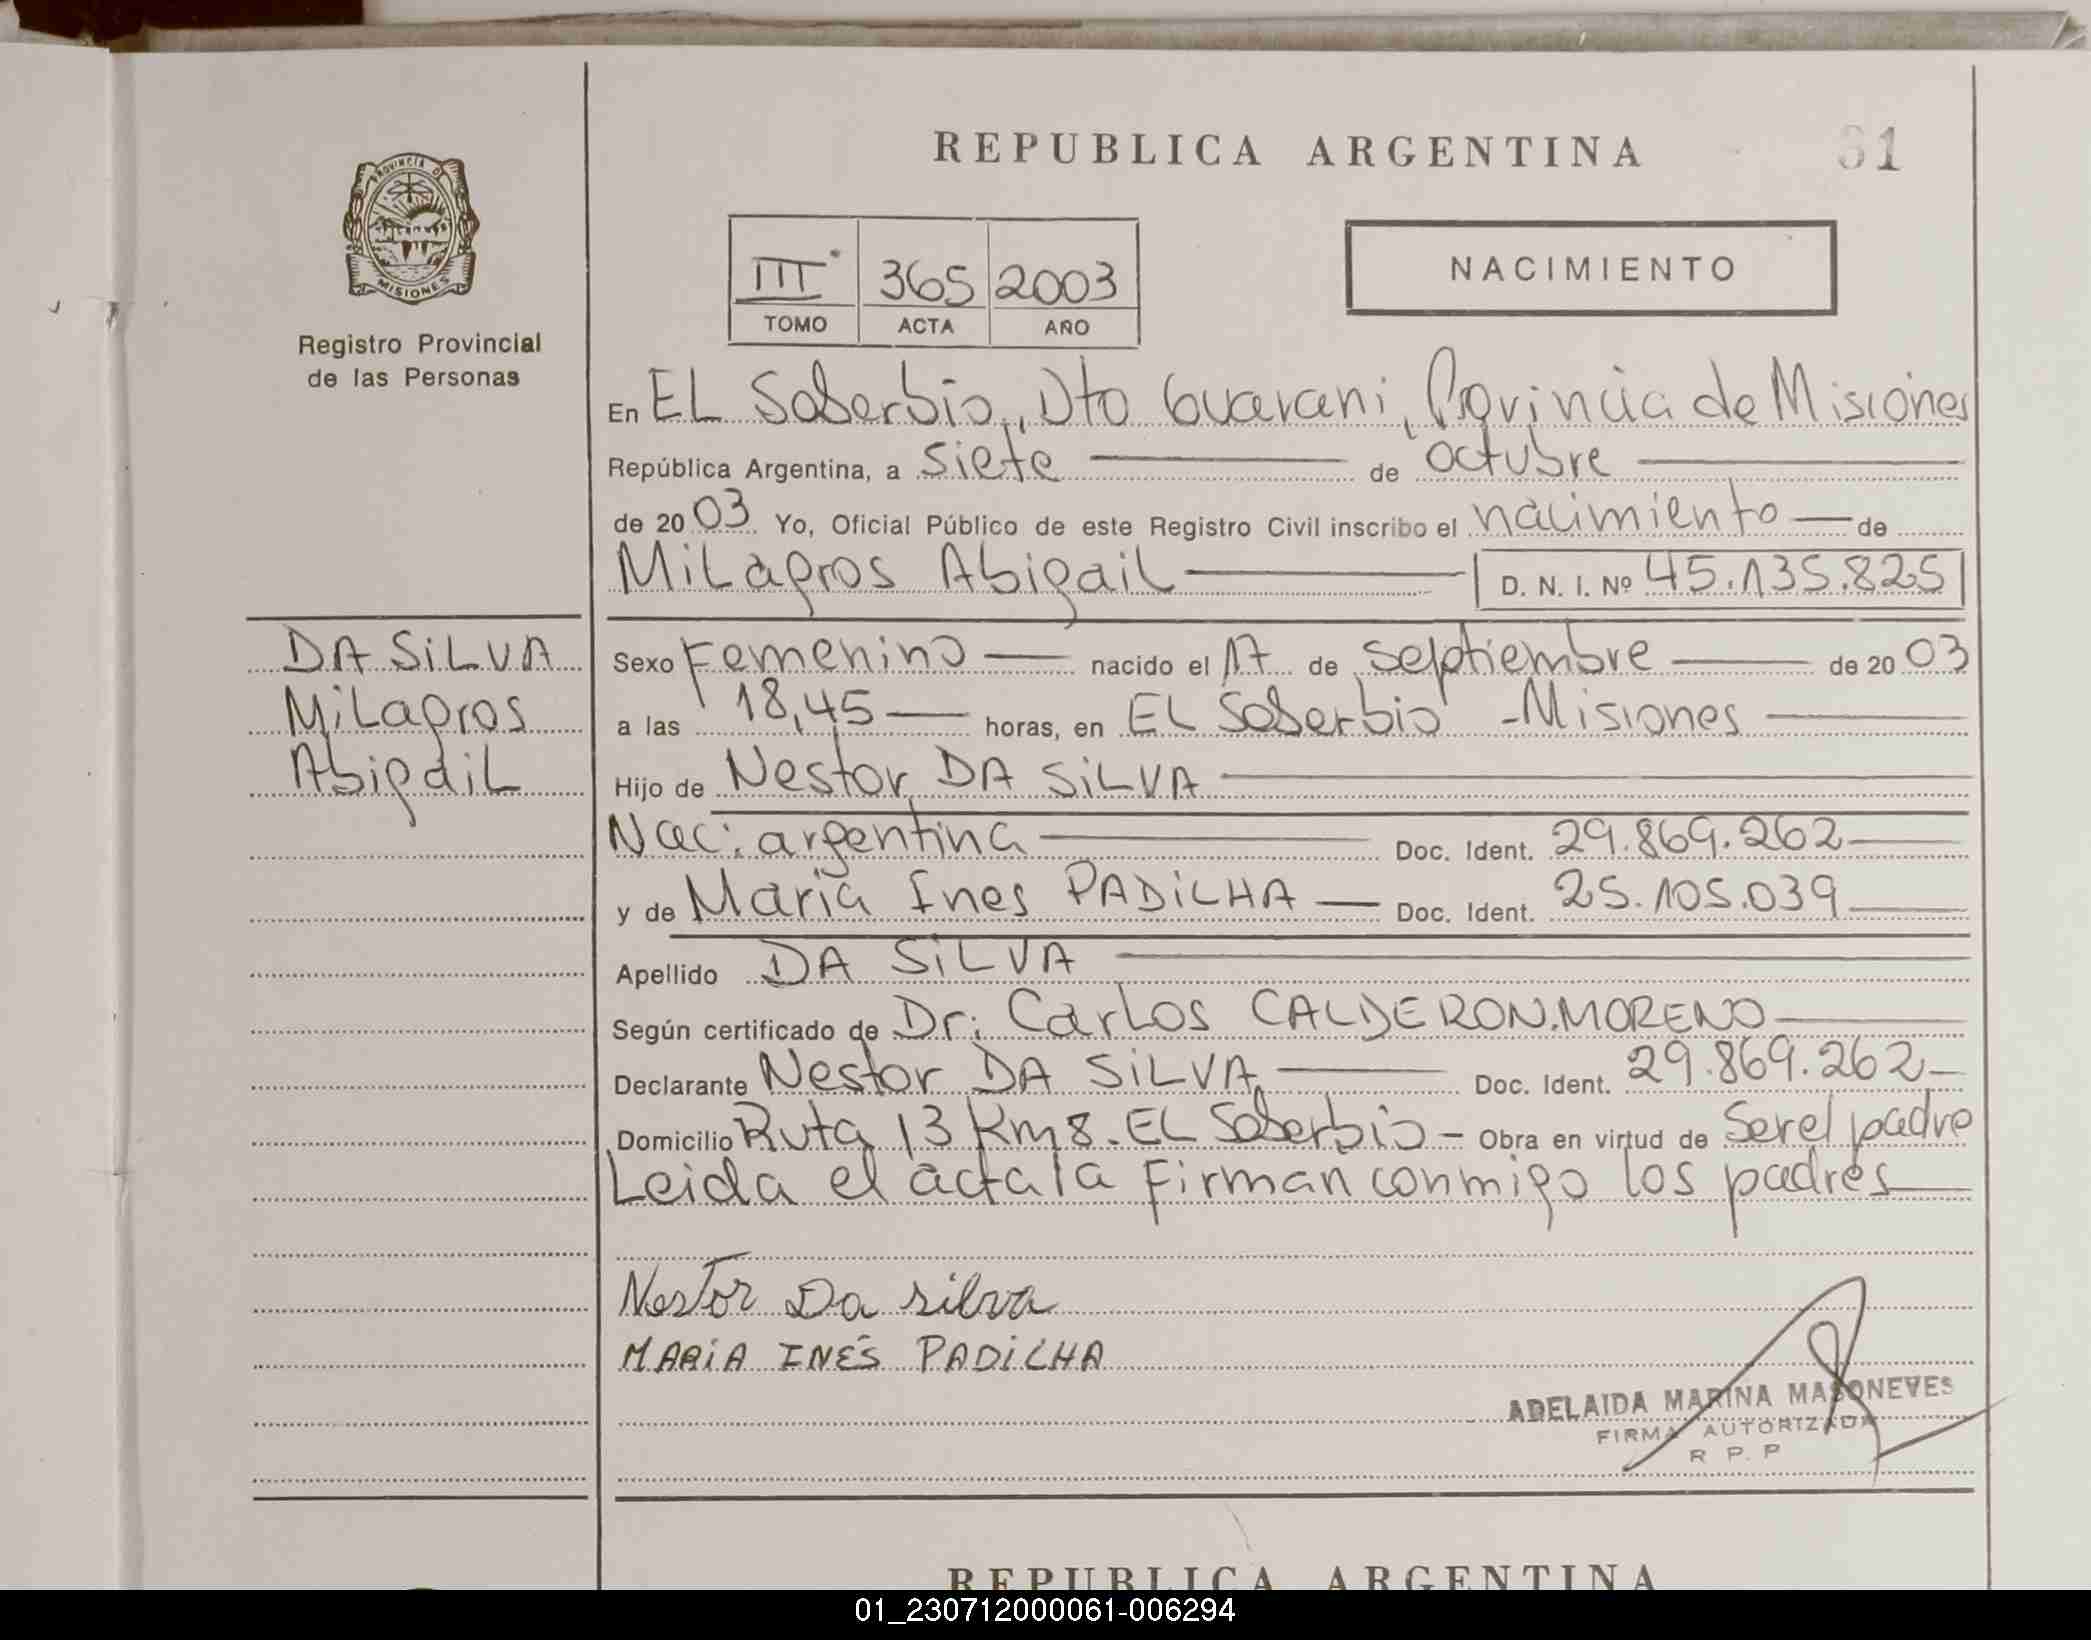 REPUBLICA ARGENTINA
31
PROVINCIA D
MISIONES
Registro Provincial
de las Personas
III 365 2003
TOMO ACTA AÑO
NACIMIENTO
En EL Soberbio, Dto Guarani, Provincia de Misiones
República Argentina, a siete de octubre
de 2003 Yo, Oficial Público de este Registro Civil inscribo el nacimiento de
Milagros Abigail D. N. I. Nº 45.135.825
DA SILVA
Milagros
Abigail
Sexo Femenino nacido el 17 de Septiembre de 2003
a las 18,45 horas, en EL Soberbio - Misiones
Hijo de Nestor DA SILVA
Nac: argentina Doc. Ident. 29.869.262
y de Maria Ines PADILHA Doc. Ident. 25.105.039
Apellido DA SILVA
Según certificado de Dr: Carlos CALDERON.MORENO
Declarante Nestor DA SILVA Doc. Ident. 29.869.262
Domicilio Ruta 13 Km 8. EL Soberbio - Obra en virtud de Ser el padre
Leida el acta la Firman conmigo los padres
Nestor Da silva
MARIA INÉS PADILHA
ADELAIDA MARINA MASONEVES
FIRMA AUTORIZADA
R P. P
REPUBLICA ARGENTINA
01_230712000061-006294